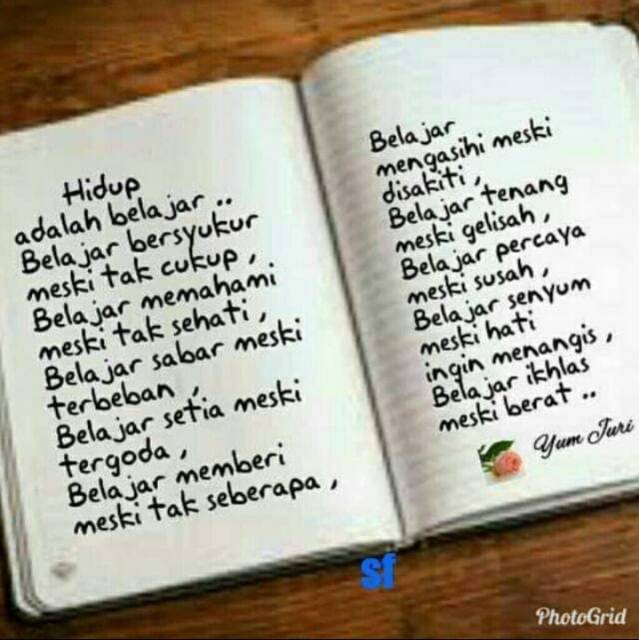 Hidup
adalah belajar ..
Belajar bersyukur
meski tak cukup ,
Belajar memahami
meski tak sehati ,
Belajar sabar meski
terbeban ,
Belajar setia meski
tergoda ,
Belajar memberi
meski tak seberapa ,
Belajar
mengasihi meski
disakiti ,
Belajar tenang
meski gelisah ,
Belajar percaya
meski susah ,
Belajar senyum
meski hati
ingin menangis ,
Belajar ikhlas
meski berat ..
Yum Juri
sf
PhotoGrid